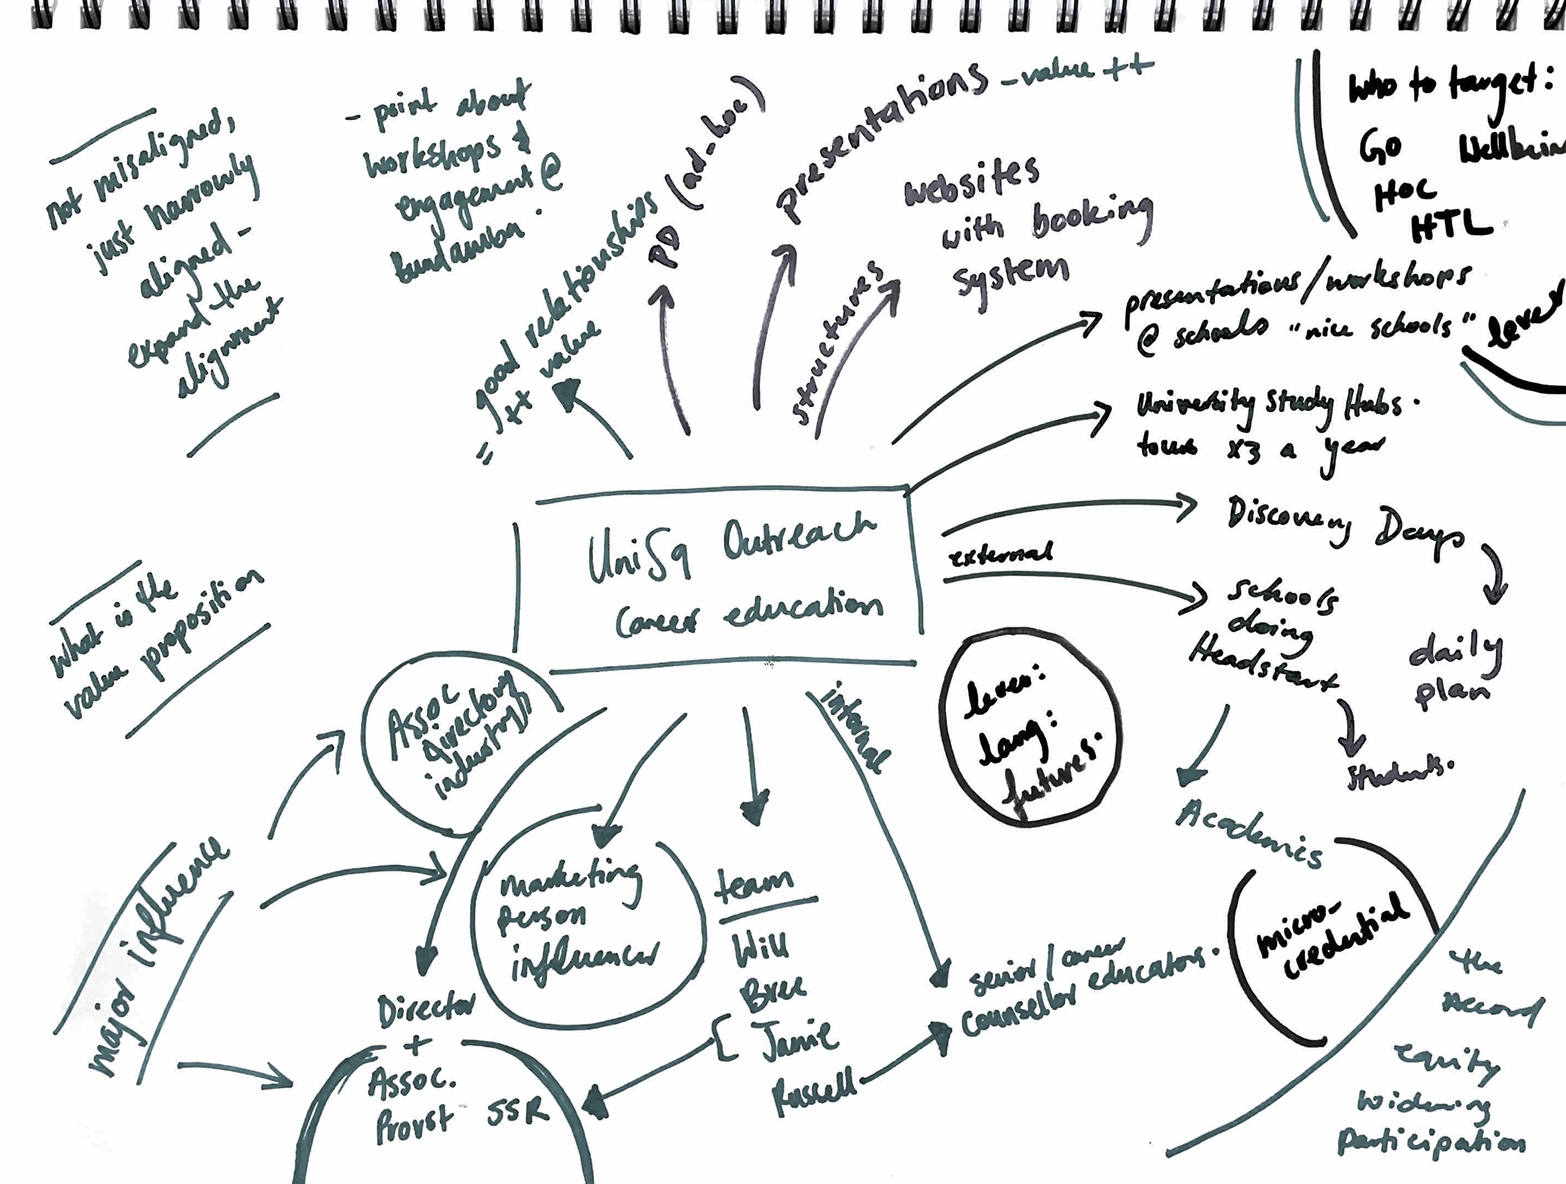 not misaligned,
just narrowly
aligned -
expand the
alignment
- point about
workshops &
engagement @
Bundamba.
good relationships
= ++ value
PD (ad-hoc)
presentations - value ++
structures
websites
with booking
system
who to target:
GO Wellbein
HOC
HTL
presentations/workshops
@ schools "nice schools"
level
University Study Hubs.
tours x3 a year
Discovery Days
daily
plan
external
schools
doing
Headstart
students.
UniSq Outreach
Career education
what is the
value proposition
Assoc
directory
industry))
internal
lang:
futures.
Academics
micro-
credential
major influence
marketing
person
influencer
team
Will
Bree
Jamie
Russell
senior/career
counsellor educators.
Director
+
Assoc.
Provst SSR
the
Accord
equity
widening
participation